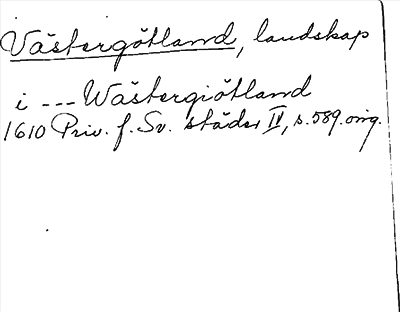 Västergötland, landskap
i --- Wästergiötland
1610 Priv. f. Sv. städer II, s. 589. orig.